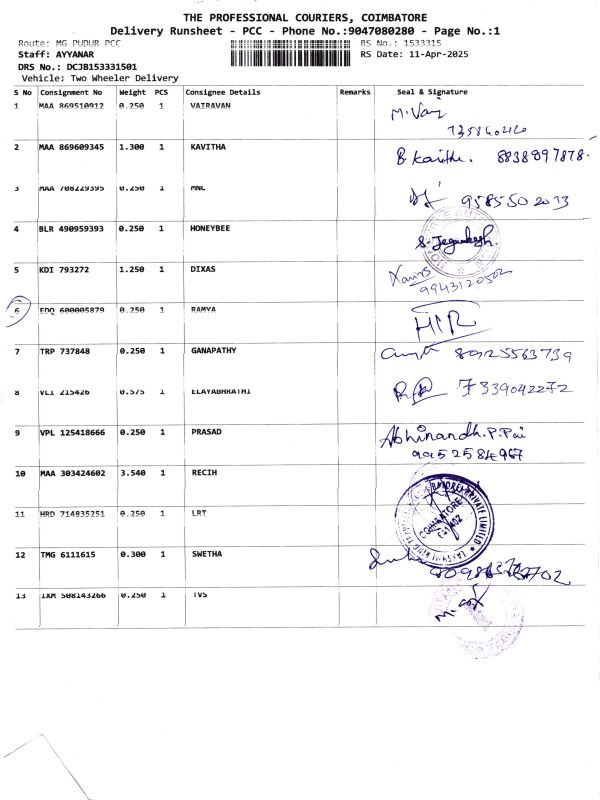 THE PROFESSIONAL COURIERS, COIMBATORE
Delivery Runsheet - PCC - Phone No.:9047080280 - Page No.:1
Route: MG PUDUR PCC RS No.: 1533315
Staff: AYYANAR RS Date: 11-Apr-2025
DRS No.: DCJB153331501
Vehicle: Two Wheeler Delivery
S No Consignment No Weight PCS Consignee Details Remarks Seal & Signature
1 MAA 869510912 0.250 1 VAIRAVAN
2 MAA 869609345 1.300 1 KAVITHA B Kavitha. 8838997878.
3 MAA 708229395 0.250 1 MNC 9585502013
4 BLR 490959393 0.250 1 HONEYBEE
5 KDI 793272 1.250 1 DIXAS
9943120502
6 EDQ 600005879 0.250 1 RAMYA
7 TRP 737848 0.250 1 GANAPATHY 8925563739
8 VLI 215426 0.575 1 ELAYABHRATHI 7339042272
9 VPL 125418666 0.250 1 PRASAD Abhinandh.P.Pai
9952584967
10 MAA 303424602 3.540 1 RECIH
COIMBATORE
11 HRD 714835251 0.250 1 LRT
12 TMG 6111615 0.300 1 SWETHA
13 IXM 508143266 0.250 1 TVS